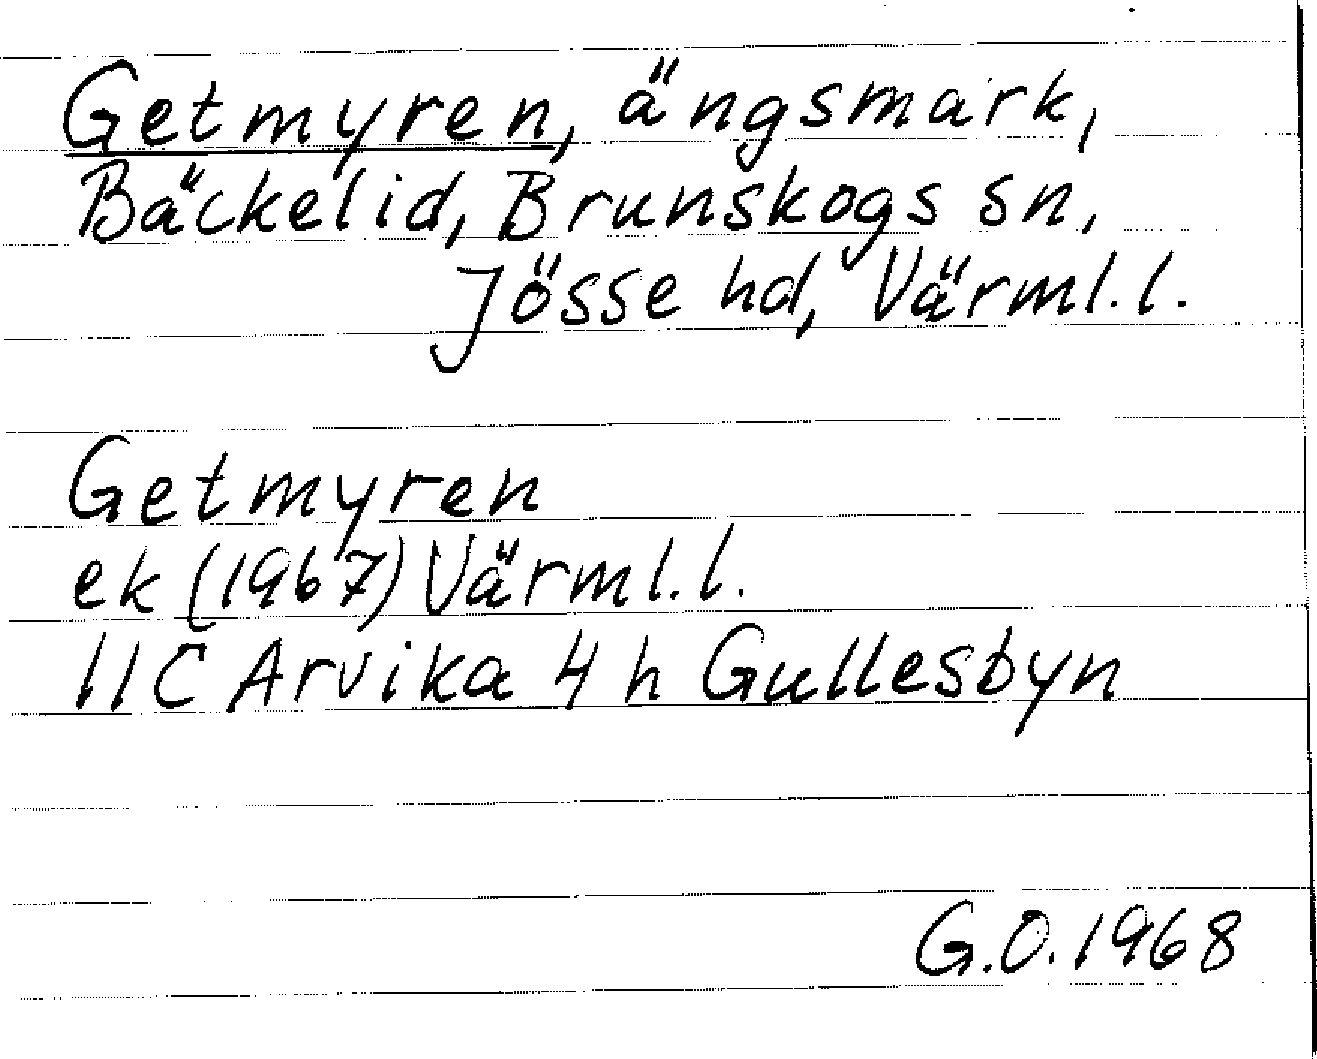 Getmyren, ängsmark,
Bäckelid, Brunskogs sn,
Jösse hd, Värml. l.
Getmyren
ek (1967) Värml. l.
11C Arvika 4 h Gullesbyn
G.O. 1968